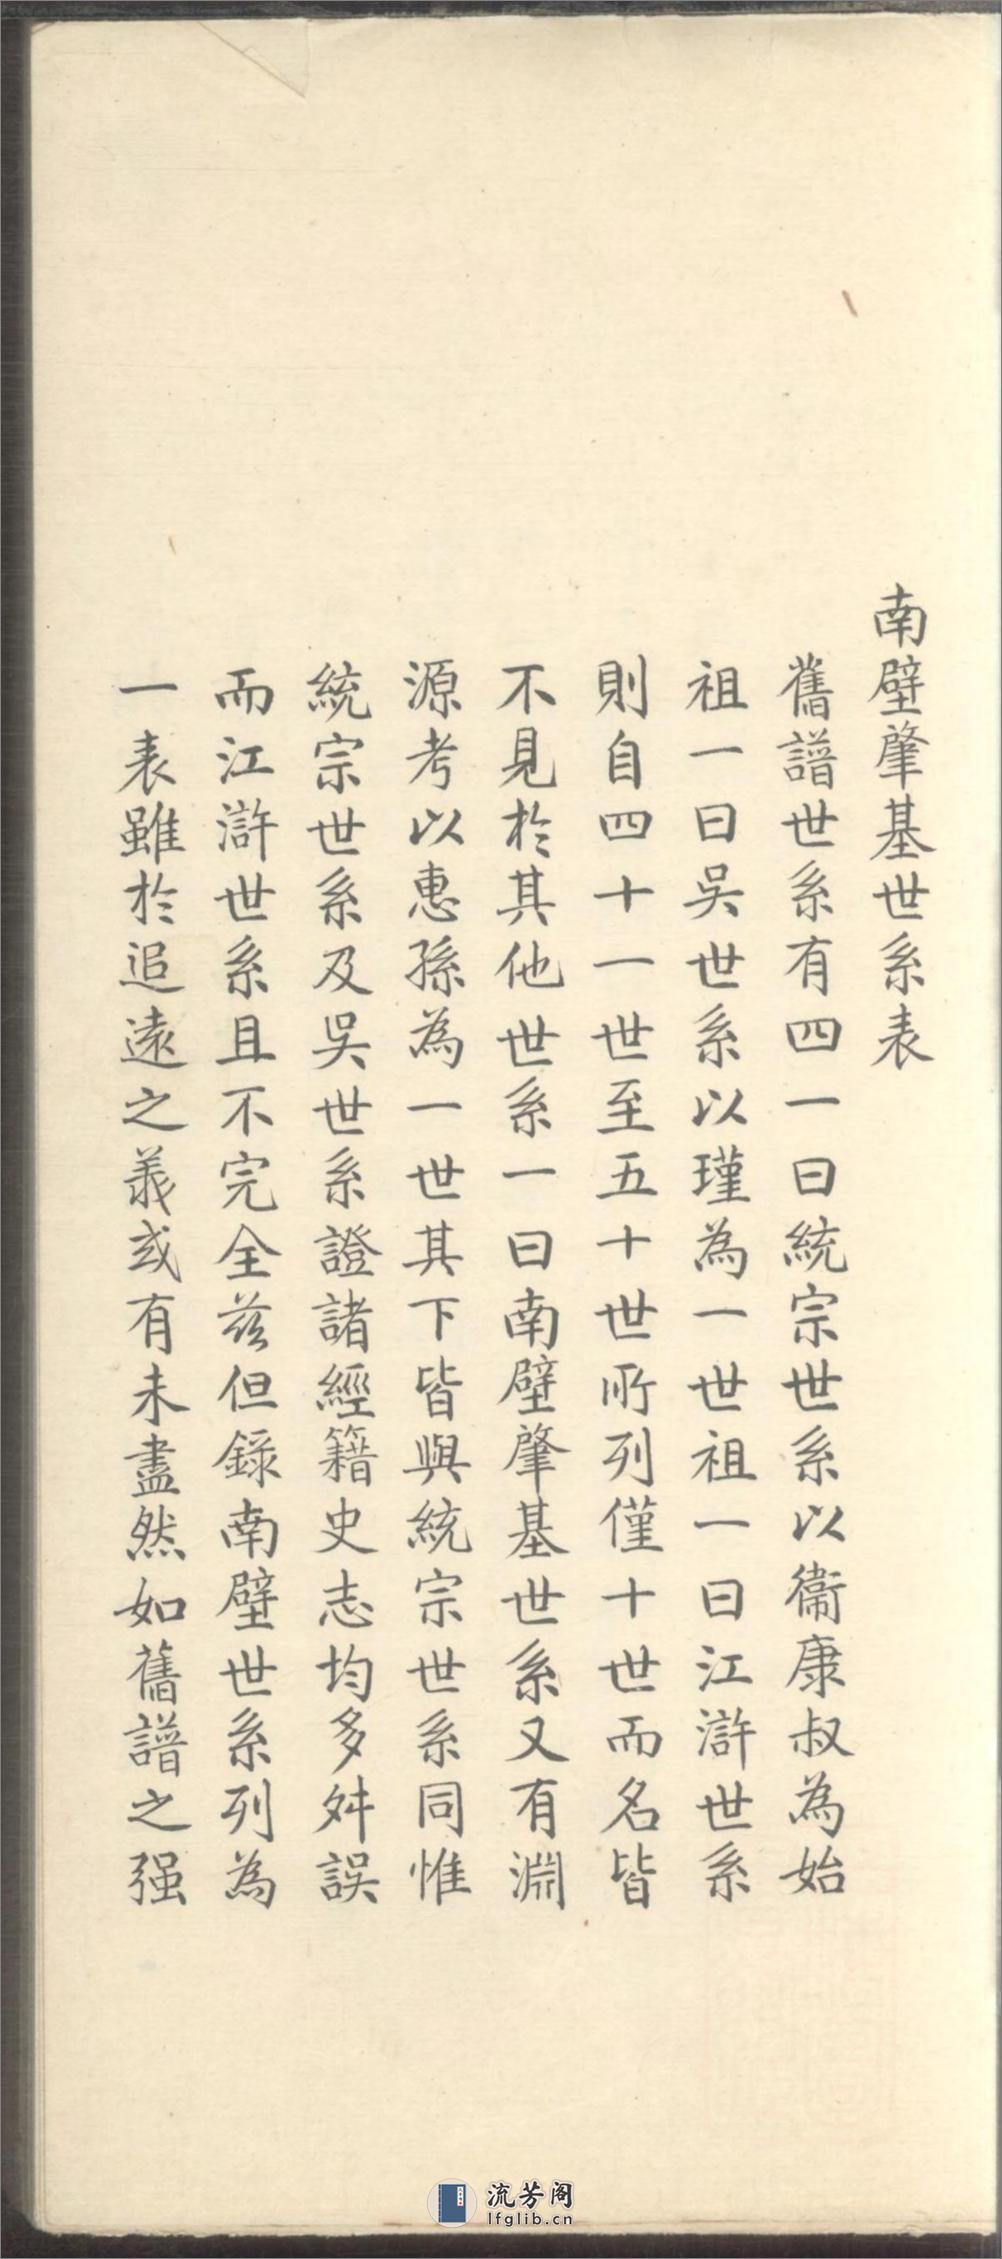 南壁肇基世系表
舊譜世系有四一曰統宗世系以衞康叔為始
祖一曰吳世系以瑾為一世祖一曰江滸世系
則自四十一世至五十世所列僅十世而名皆
不見於其他世系一曰南壁肇基世系又有淵
源考以惠孫為一世其下皆與統宗世系同惟
統宗世系及吳世系證諸經籍史志均多舛誤
而江滸世系且不完全茲但錄南壁世系列為
一表雖於追遠之義或有未盡然如舊譜之强
流芳阁
lfglib.cn